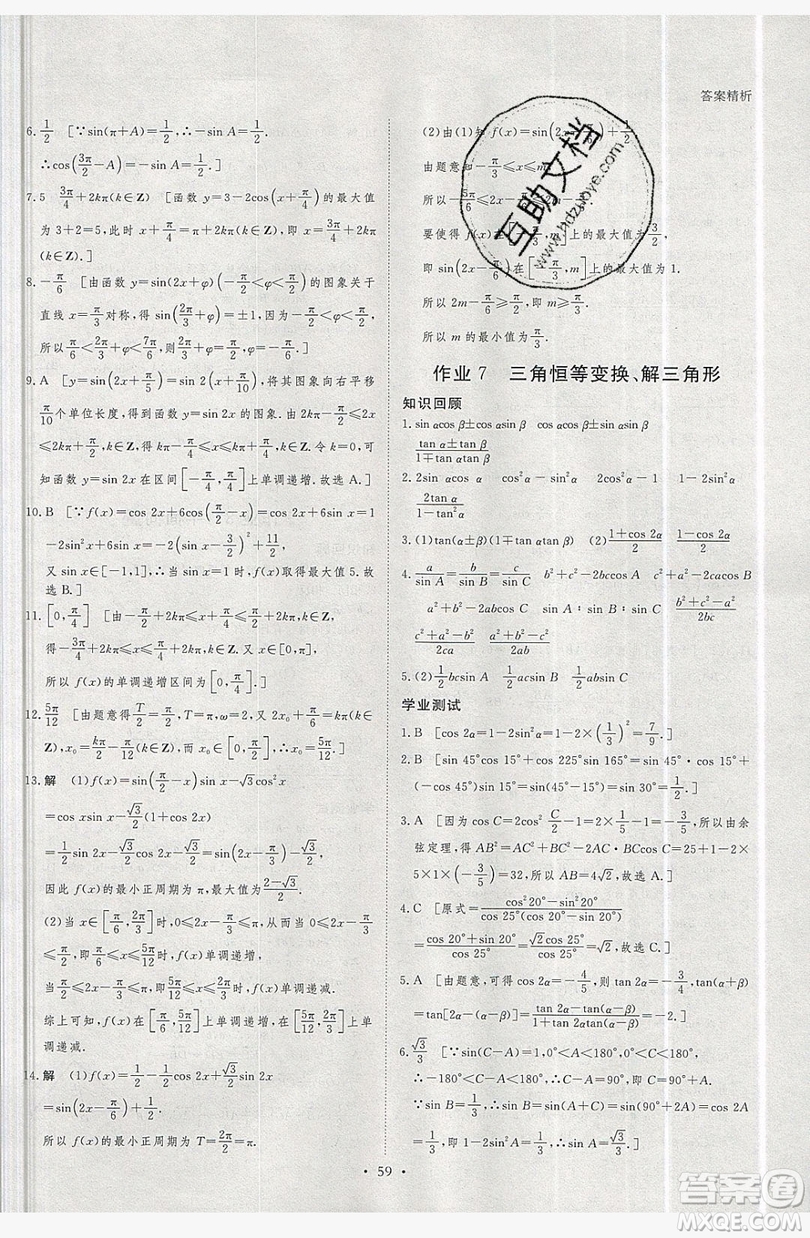 答案精析
6.1/2 [∵sin(π+A)=-1/2,∴-sin A=-1/2.
∴cos(3π/2-A)=-sin A=-1/2.]
7.5 3π/4+2kπ(k∈Z) [函数 y=3-2cos(x+π/4)的最大值
为 3+2=5,此时 x+π/4=π+2kπ,即 x=3π/4+2kπ
(k∈Z).]
8.-π/6 [由函数 y=sin(2x+φ)(-π/2<φ<π/2)的图象关于
直线 x=π/3 对称,得 sin(2π/3+φ)=±1,因为-π/2<φ<π/2,
所以π/6<2π/3+φ<7π/6,则2π/3+φ=π/2,φ=-π/6.]
9.A [将函数 y=sin(2x+π/5)的图象向右平移
π/10个单位长度,得到函数 y=sin 2x 的图象.由 2kπ-π/2
≤2x≤2kπ+π/2,k∈Z,得 kπ-π/4≤x≤kπ+π/4,k∈Z,可
知函数 y=sin 2x 在区间[-π/4,π/4]上单调递增.故选 A.]
10.B [∵f(x)=cos 2x+6cos(π/2-x)=cos 2x+6sin x=
1-2sin²x+6sin x=-2(sin x-3/2)²+11/2,
又 sin x∈[-1,1],∴当 sin x=1 时,f(x)取得最大值 5.故
选 B.]
11.[0,π/4] [由-π/2+2kπ≤2x≤π/2+2kπ,k∈Z,

12.5π/12 [由题意得T/2=π/2,T=π,ω=2,又 2x₀+π/6=kπ(k∈
Z),x₀=kπ/2-π/12(k∈Z),而 x₀∈[0,π/2],所以 x₀=5π/12.]
13.解 (1)f(x)=sin(π/2-x)sin x-√3cos²x
=cos xsin x-√3/2(1+cos 2x)
=1/2sin 2x-√3/2cos 2x-√3/2=sin(2x-π/3)-√3/2,
因此 f(x)的最小正周期为 π,最大值为(2-√3)/2.
(2)当 x∈[π/6,2π/3]时,0≤2x-π/3≤π,从而当 0≤2x-π/3
≤π/2,即π/6≤x≤5π/12时,f(x)单调递增,
当π/2≤2x-π/3≤π,即5π/12≤x≤2π/3时,f(x)单调递减.
综上可知,f(x)在[π/6,5π/12]上单调递增,在[5π/12,2π/3]上单
调递减.
14.解 (1)f(x)=1/2-1/2cos 2x+√3/2sin 2x
=sin(2x-π/6)+1/2,
所以 f(x)的最小正周期为 T=2π/2=π.
(2)由(1)知 f(x)=sin(2x-π/6)+1/2
由题意知-π/3≤x≤m,

即 sin(2x-π/6)在[-π/3,m]上的最大值为 1.
所以 2m-π/6≥π/2,即 m≥π/3.
所以 m 的最小值为π/3.
作业 7 三角恒等变换、解三角形
知识回顾
1.sin αcos β±cos αsin β cos αcos β∓sin αsin β
(tan α±tan β)/(1∓tan αtan β)
2.2sin αcos α cos²α-sin²α 2cos²α-1 1-2sin²α
2tan α/(1-tan²α)
3.(1)tan(α±β)(1∓tan αtan β) (2)(1+cos 2α)/2 (1-cos 2α)/2
4.a/sin A=b/sin B=c/sin C b²+c²-2bccos A c²+a²-2cacos B
a²+b²-2abcos C sin A∶sin B∶sin C (b²+c²-a²)/2bc
(c²+a²-b²)/2ca (a²+b²-c²)/2ab
5.(2)1/2bcsin A 1/2acsin B 1/2absin C
学业测试
1.B [cos 2α=1-2sin²α=1-2×(1/3)²=7/9.]
2.B [sin 45°cos 15°+cos 225°sin 165°=sin 45°·cos 15°
-cos 45°sin 15°=sin(45°-15°)=sin 30°=1/2.]
3.A [因为 cos C=2cos²C/2-1=2×1/5-1=-3/5,所以由余
弦定理,得 AB²=AC²+BC²-2AC·BCcos C=25+1-2×
5×1×(-3/5)=32,所以 AB=4√2.故选 A.]
4.C [原式=(cos²20°-sin²20°)/(cos 25°(cos 20°-sin 20°))
=(cos 20°+sin 20°)/cos 25°=√2cos 25°/cos 25°=√2,故选 C.]
5.A [由题意,可得 cos α=-4/5,则 tan α=-3/4,tan β=
tan[α-(α-β)]=(tan α-tan(α-β))/(1+tan αtan(α-β))

6.√3/3 [∵sin(C-A)=1,0°<A<180°,0°<C<180°,
∴-180°<C-A<180°,∴C-A=90°,∴C=90°+A.
∵sin B=1/3,∴sin B=sin(A+C)=sin(90°+2A)=cos 2A
=1/3,即 1-2sin²A=1/3,∴sin A=√3/3.]
• 59 •
互助文档
www.hdzuoye.com
答案圈
MXQE.COM